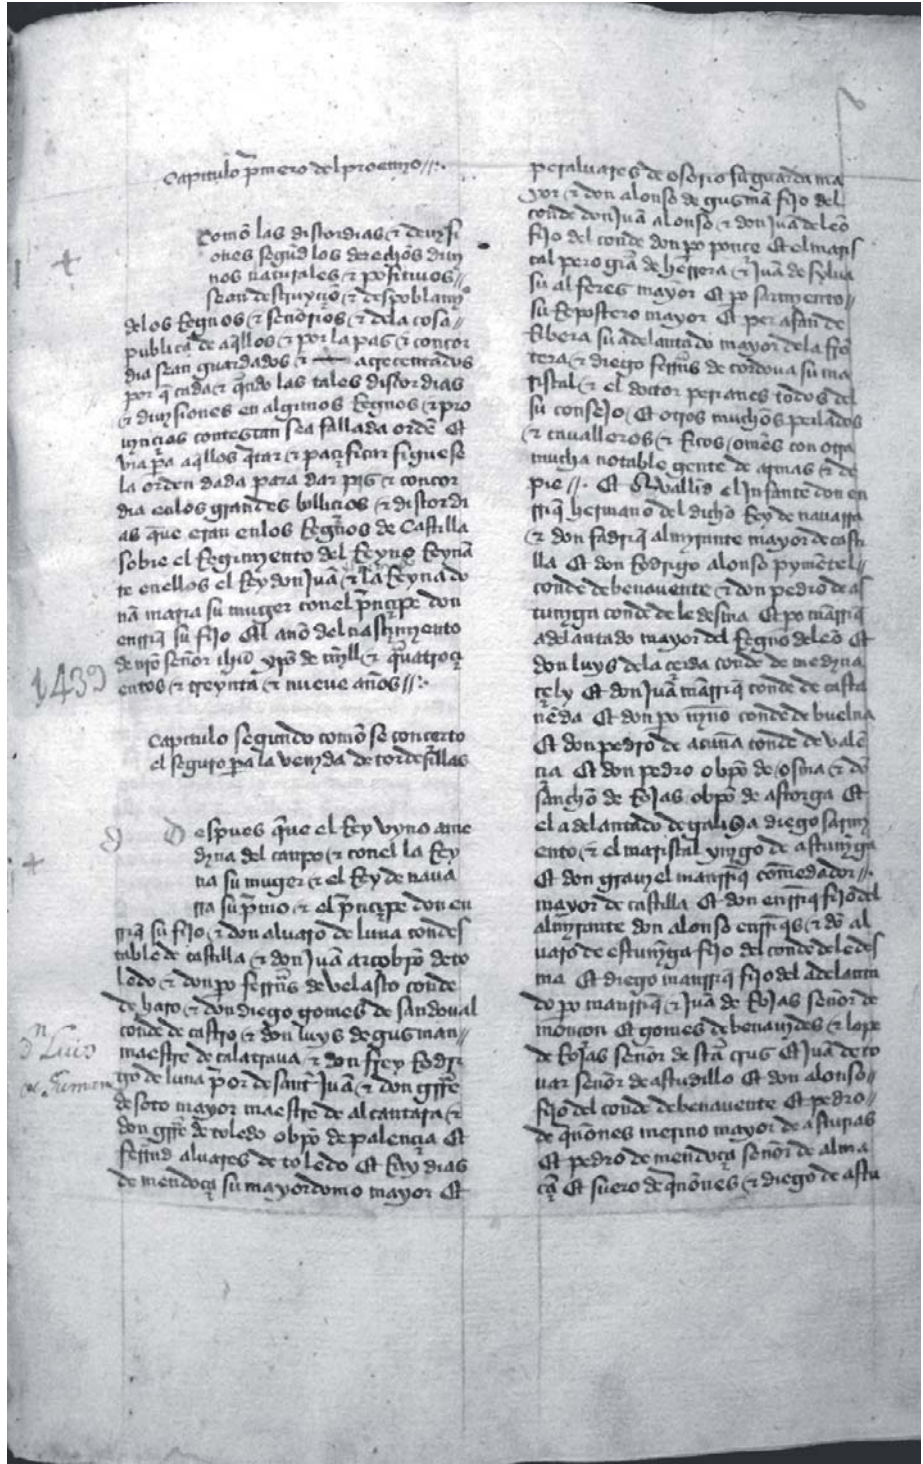 Capitulo p̃mero del prohemio //:.
Como las discordias & deuysi
ones segũd los derechos diuj
nos naturales & positiuos //
sean destruyçiõ & despoblamjº
delos Regnos & señorios & dela cosa //
publica de aq̃llos & por la paz & concor
dia sean guardados & acreçentados
por q̃ cada & q̃ndo las tales discordias
& diujsiones en algunos Regnos & pro
uynçias contescan sea fallada ordẽ Et
via pã aq̃llos q̃tar & paçificar siguese
la orden dada para dar paz & concor
dia enlos grandes bolliçios & discordi
as que eran enlos Regños de Castilla
sobre el Regimyento del Reyno Reynã
te enellos el Rey don Juã & la Reyna do
ña maria su muger conel p̃nçipe don
enrriq̃ su fijo El año del nasçimyento
de nr̃o señor ihũ xp̃o de mjll & quatroçi
entos & treynta & nueve años //:.
1439
Capitulo segundo como se conçerto
el seguro pã la venyda de tordesillas
D espues que el Rey vyno a me
dyna del canpo & con el la Rey
na su muger & el Rey de naua
rra su p̃mo & el p̃nçipe don en
rriq̃ su fijo & don aluaro de luna condes
table de castilla & don Juã arçobp̃o de to
ledo & don pº ferrñs de velasco conde
de haro & don diego gomes de sandoual
conde de castro & don luys de gusman //
maestre de calatraua & don frey Rodri
go de luna p̃or de sant Juã & don grr̃e
de soto mayor maestre de alcantara &
don grr̃e de toledo obp̃o de palençia Et
ferrnd aluares de toledo Et Ray dias
de mendoça su mayordomo mayor Et
dn Luis
de Guzman
peraluares de osorio su guarda ma
yor & don alonso de gusmã fijo del
conde don juã alonso & don Juã de leõ
fijo del conde don pº ponçe Et el maris
cal pero grã de herrera & Juã de sylua
su alferes mayor Et pº sarmiento //
su Repostero mayor Et per afan de
Ribera su adelantado mayor dela frõ
tera & diego ferrñs de cordoua su ma
riscal & el doctor periañes todos del
su consejo Et otros muchos perlados
& caualleros & Ricos omẽs con otra
mucha notable gente de armas & de
pie //. Et a vallid el Infante don en
rriq̃ hermano del dicho Rey de nauarra
& don fadriq̃ almyrante mayor de casti
lla Et don Rodrigo alonso pymẽtel //
conde de benauente & don pedro de as
tunyga conde de ledesma Et pº mãrriq̃
adelantado mayor del Regno de leõ Et
don luys dela çerda conde de medyna
çely Et don Juã mãrriq̃ conde de casta
ñeda Et don pº nyño conde de buelna
Et don pedro de acuña conde de valẽ
çia Et don pedro obp̃o de osma & dõ
sancho de Rojas obp̃o de astorga Et
el adelantado de galisia diego sarmj
ento & el mariscal yñygo de astunyga
Et don grauyel manrriq̃ comẽdador //.
mayor de castilla Et don enrriq̃ fijo del
almyrante don alonso enrriq̃s & dõ al
uaro de estunyga fijo del conde de ledes
ma Et diego manrriq̃ fijo del adelanta
do pº manrriq̃ & Juã de Rojas señor de
monçon Et gomes de benauides & lope
de Rojas señor de stã crus Et Juã de to
uar señor de astudillo Et don alonso //
fijo del conde de benauente Et pedro //
de quñones merino mayor de asturias
Et pedro de mendoça señor de alma
çã Et suero de q̃ñones & diego de astu